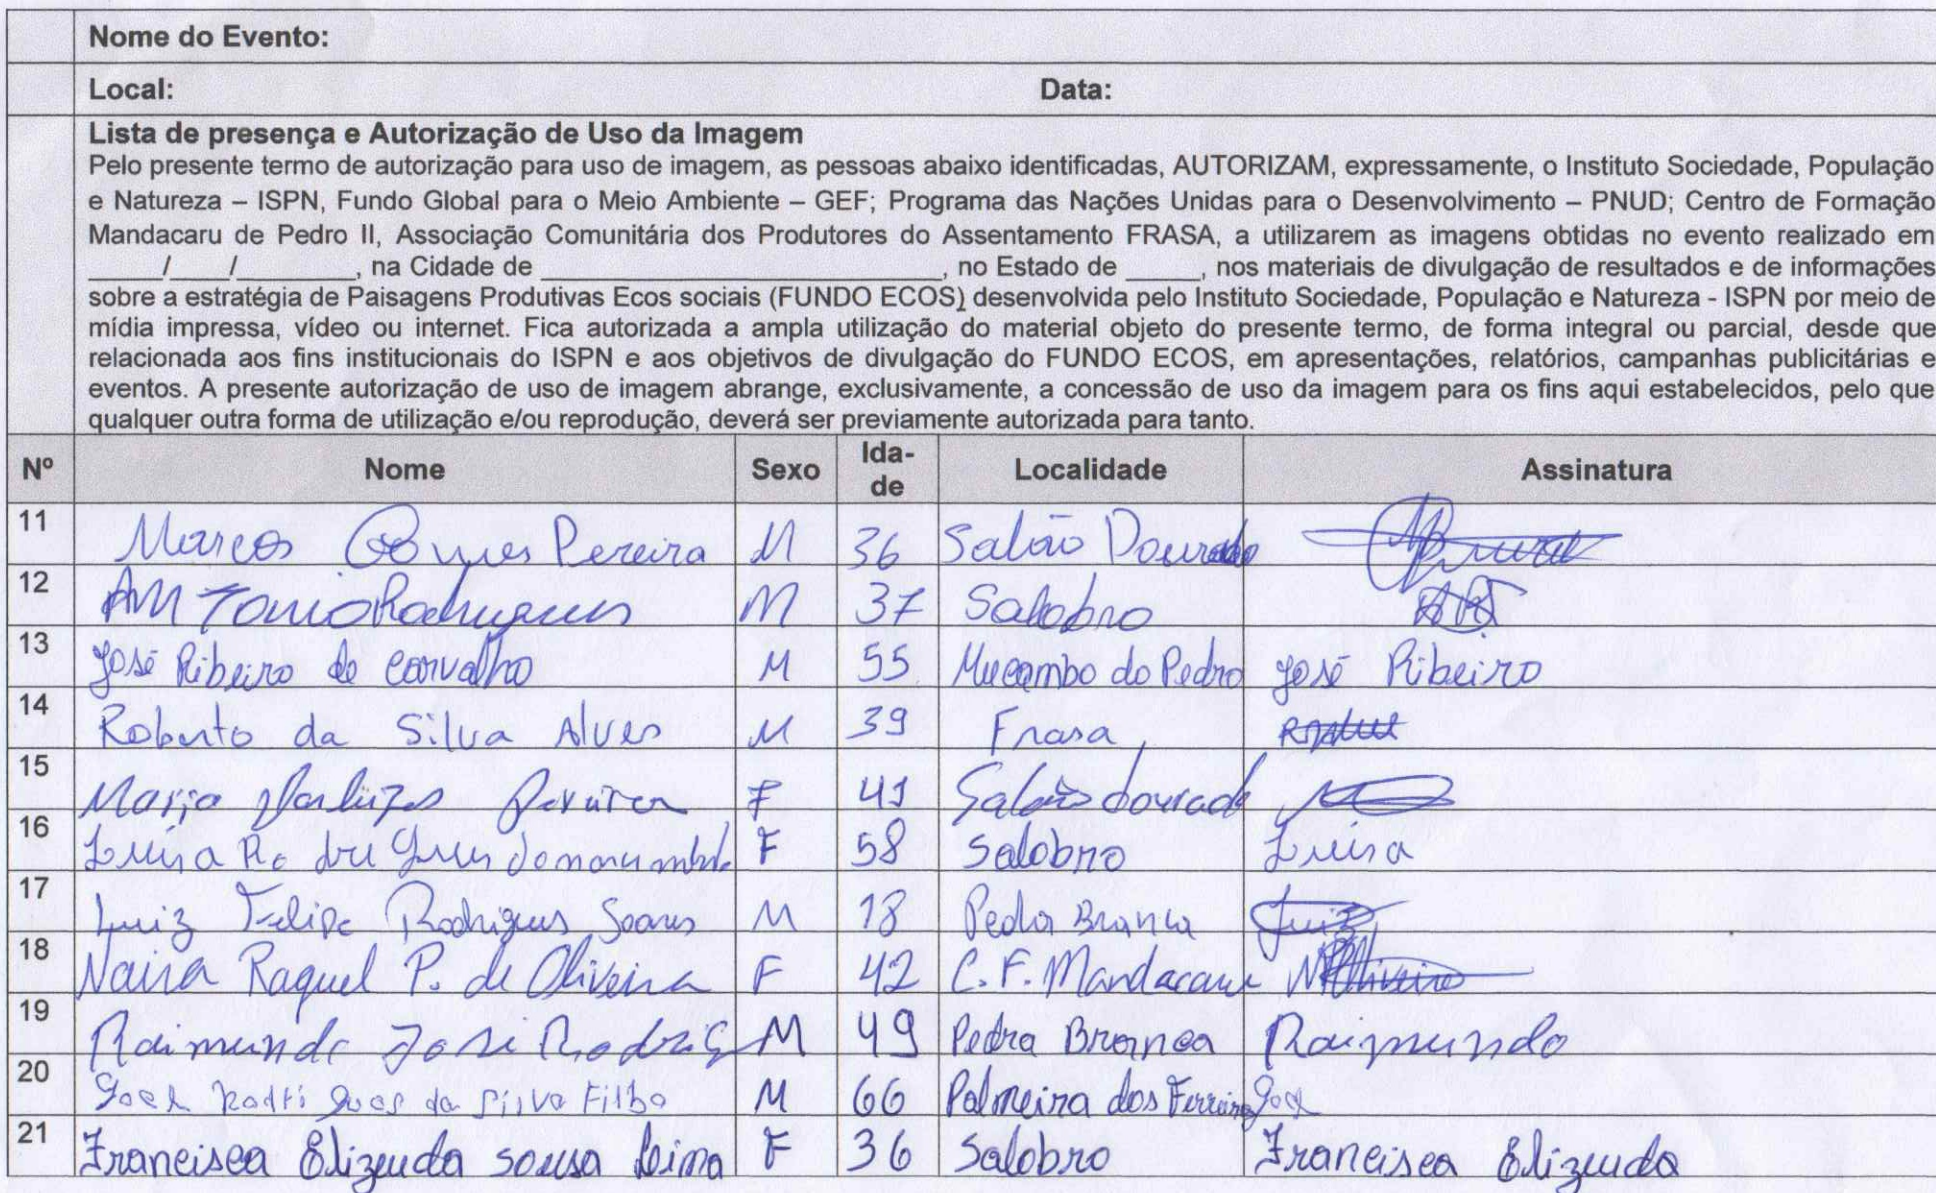 Nome do Evento:
Local: Data:
Lista de presença e Autorização de Uso da Imagem
Pelo presente termo de autorização para uso de imagem, as pessoas abaixo identificadas, AUTORIZAM, expressamente, o Instituto Sociedade, População
e Natureza – ISPN, Fundo Global para o Meio Ambiente – GEF; Programa das Nações Unidas para o Desenvolvimento – PNUD; Centro de Formação
Mandacaru de Pedro II, Associação Comunitária dos Produtores do Assentamento FRASA, a utilizarem as imagens obtidas no evento realizado em
_____/____/________, na Cidade de ___________________________, no Estado de _____, nos materiais de divulgação de resultados e de informações
sobre a estratégia de Paisagens Produtivas Ecos sociais (FUNDO ECOS) desenvolvida pelo Instituto Sociedade, População e Natureza - ISPN por meio de
mídia impressa, vídeo ou internet. Fica autorizada a ampla utilização do material objeto do presente termo, de forma integral ou parcial, desde que
relacionada aos fins institucionais do ISPN e aos objetivos de divulgação do FUNDO ECOS, em apresentações, relatórios, campanhas publicitárias e
eventos. A presente autorização de uso de imagem abrange, exclusivamente, a concessão de uso da imagem para os fins aqui estabelecidos, pelo que
qualquer outra forma de utilização e/ou reprodução, deverá ser previamente autorizada para tanto.
Nº Nome Sexo Ida-de Localidade Assinatura
11 Marcos Gomes Pereira M 36 Salão Dourado
12 Antonio Rodrigues M 37 Salobro
13 José Ribeiro de Carvalho M 55 Mucambo do Pedro José Ribeiro
14 Roberto da Silva Alves M 39 Frasa
15 Maria Pereira F 41 Salão dourado
16 Luisa F 58 Salobro Luisa
17 Luiz Felipe Rodrigues Soares M 18 Pedra Branca Luiz
18 Naira Raquel P. de Oliveira F 42 C. F. Mandacaru NROliveira
19 Raimundo José Rodrig M 49 Pedra Branca Raimundo
20 Joel Rodrigues da Silva Filho M 66 Palmeira dos Ferreira Joel
21 Francisca Elizeuda Sousa Lima F 36 Salobro Francisca Elizeuda